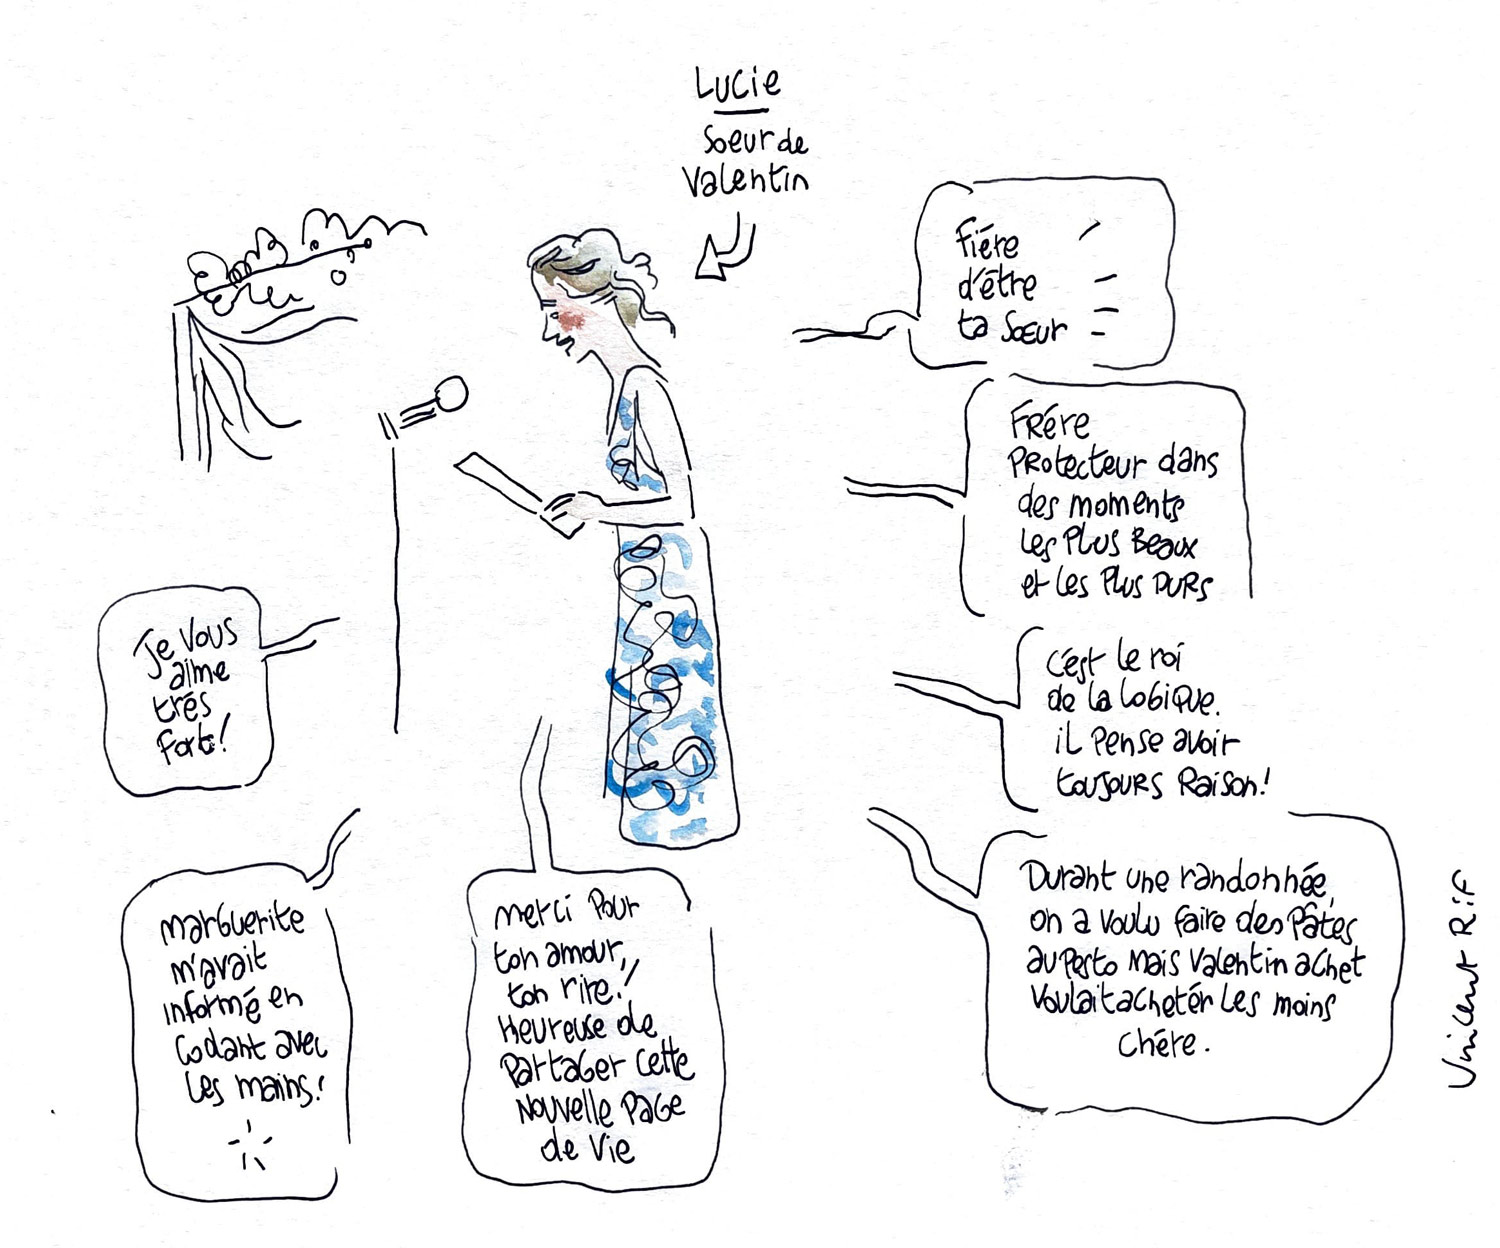 Lucie
Soeur de
Valentin
Fiére
d'être
ta Sœur
FRÉre
PRotecteur dans
des moments
les PLUS Beaux
et les Plus DURS
c'est le roi
de la logique.
il pense avoir
toujours Raison!
Durant une randonnée,
on a voulu faire des Pâtes
au Pesto Mais Valentin achet
Voulait achetér les moins
chére.
Je Vous
aime
trés
fort!
Marguerite
m'avait
informé en
Codant avec
les mains!
merci Pour
ton amour,
ton rire!
Heureuse de
Partager cette
Nouvelle Page
de Vie
Vincent R.i.F